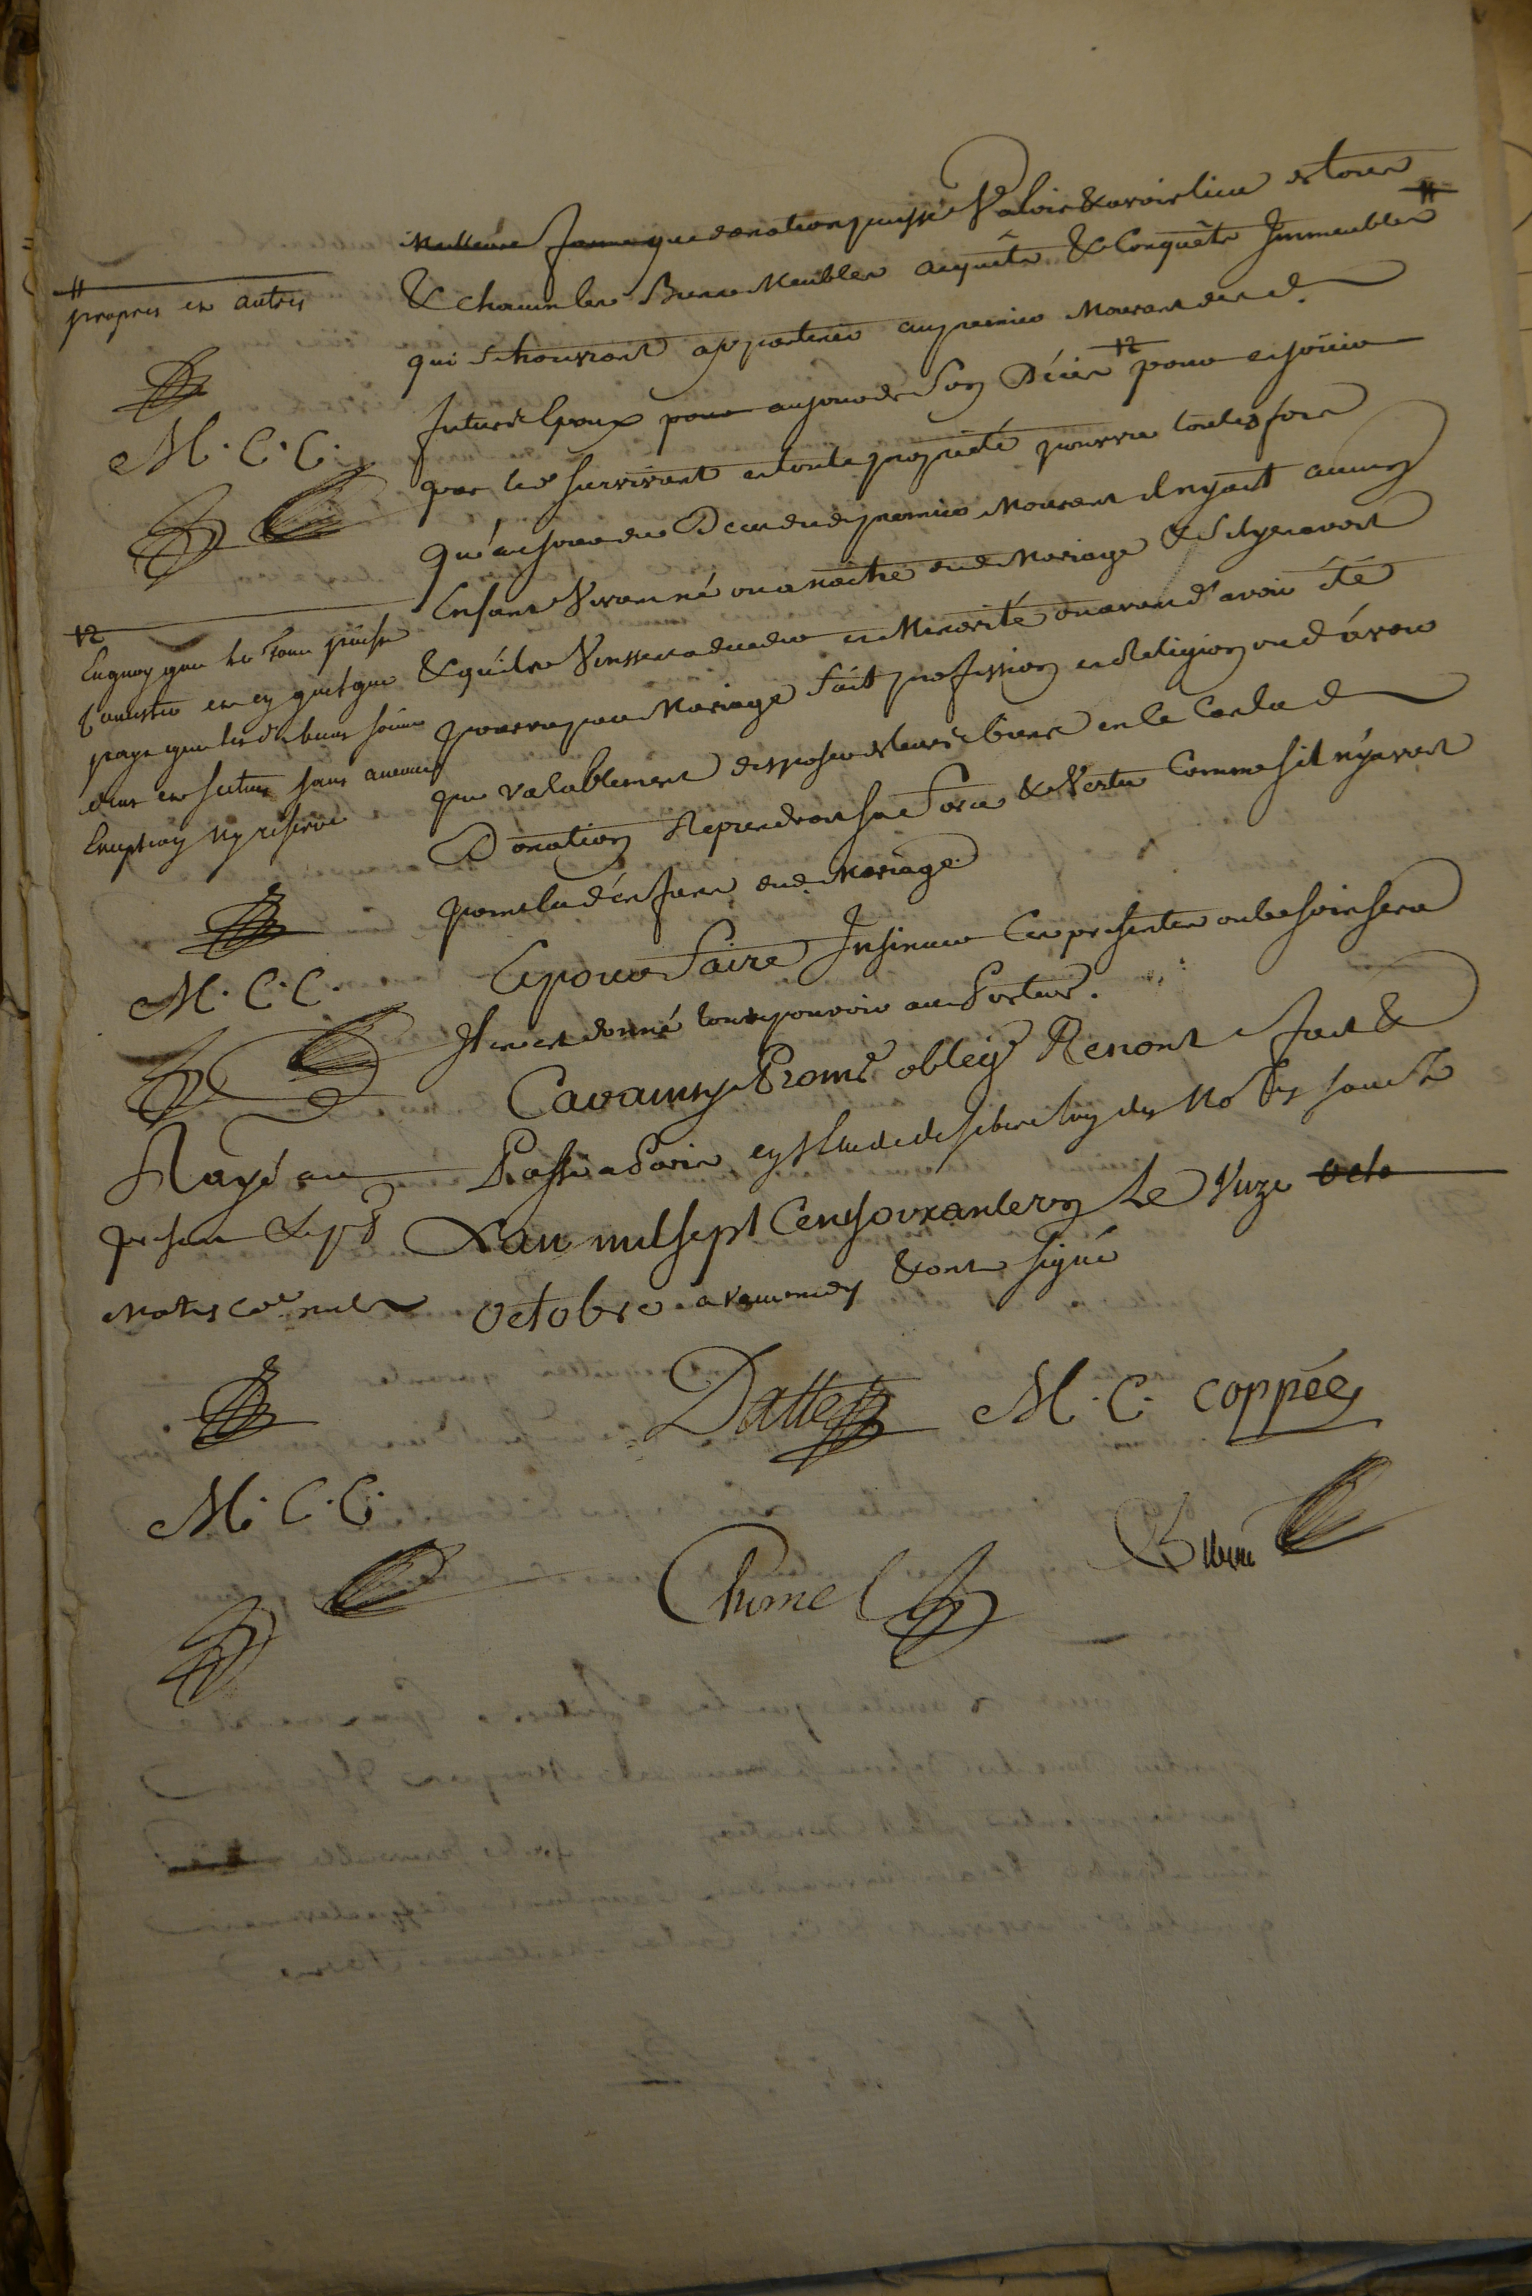 Meilleure forme que donation puisse Valoir & avoir lieu de tous
& chacuns les Biens Meubles acquêts & Conquêts Immeubles #
qui se trouveront appartenir au premier Mourant desd.
futurs Epoux pour au jour de son Décès pour en joüir
par led. survivant en toute propriété pourvu toutes fois
qu'au jour du Deces dud. premier Mourant il n'y ait aucuns
Enfans Vivans né ou a naitre dud. Mariage & S'il y en avoit
& qu'ils Vinssent a deceder en Minorité ou avant d'avoir été
pourvu par Mariage fait profession en Religion ou d'avoir
pu valablement disposer de leurs biens en ce Cas lad.
Donation Reprendroit sa Force & Vertu Comme s'il n'y avoit
point eu d'enfans dud. Mariage.
Et pour faire Insinuer Ces presentes ou besoin sera
Il en est donné tout pouvoir au Porteur.
Car ainsy Promt. obligt. Renont. fait &
Passé a Paris en l'Etude de Sibire l'un des No.res sousSé
L'an mil sept Cens soixante un Le Unze octo
Octobre avant midy & ont signé
Dattes M. C. coppée
Chomel Sibire
# propres et autres
M. C. C.
En quoy que le tout puisse
consister et en quelque
pays que lesd. biens soient
dus et scitués sans aucune
Exception ny réserve
M. C. C.
Rayé au
présent
Mots Co.e nuls
M. C. C.